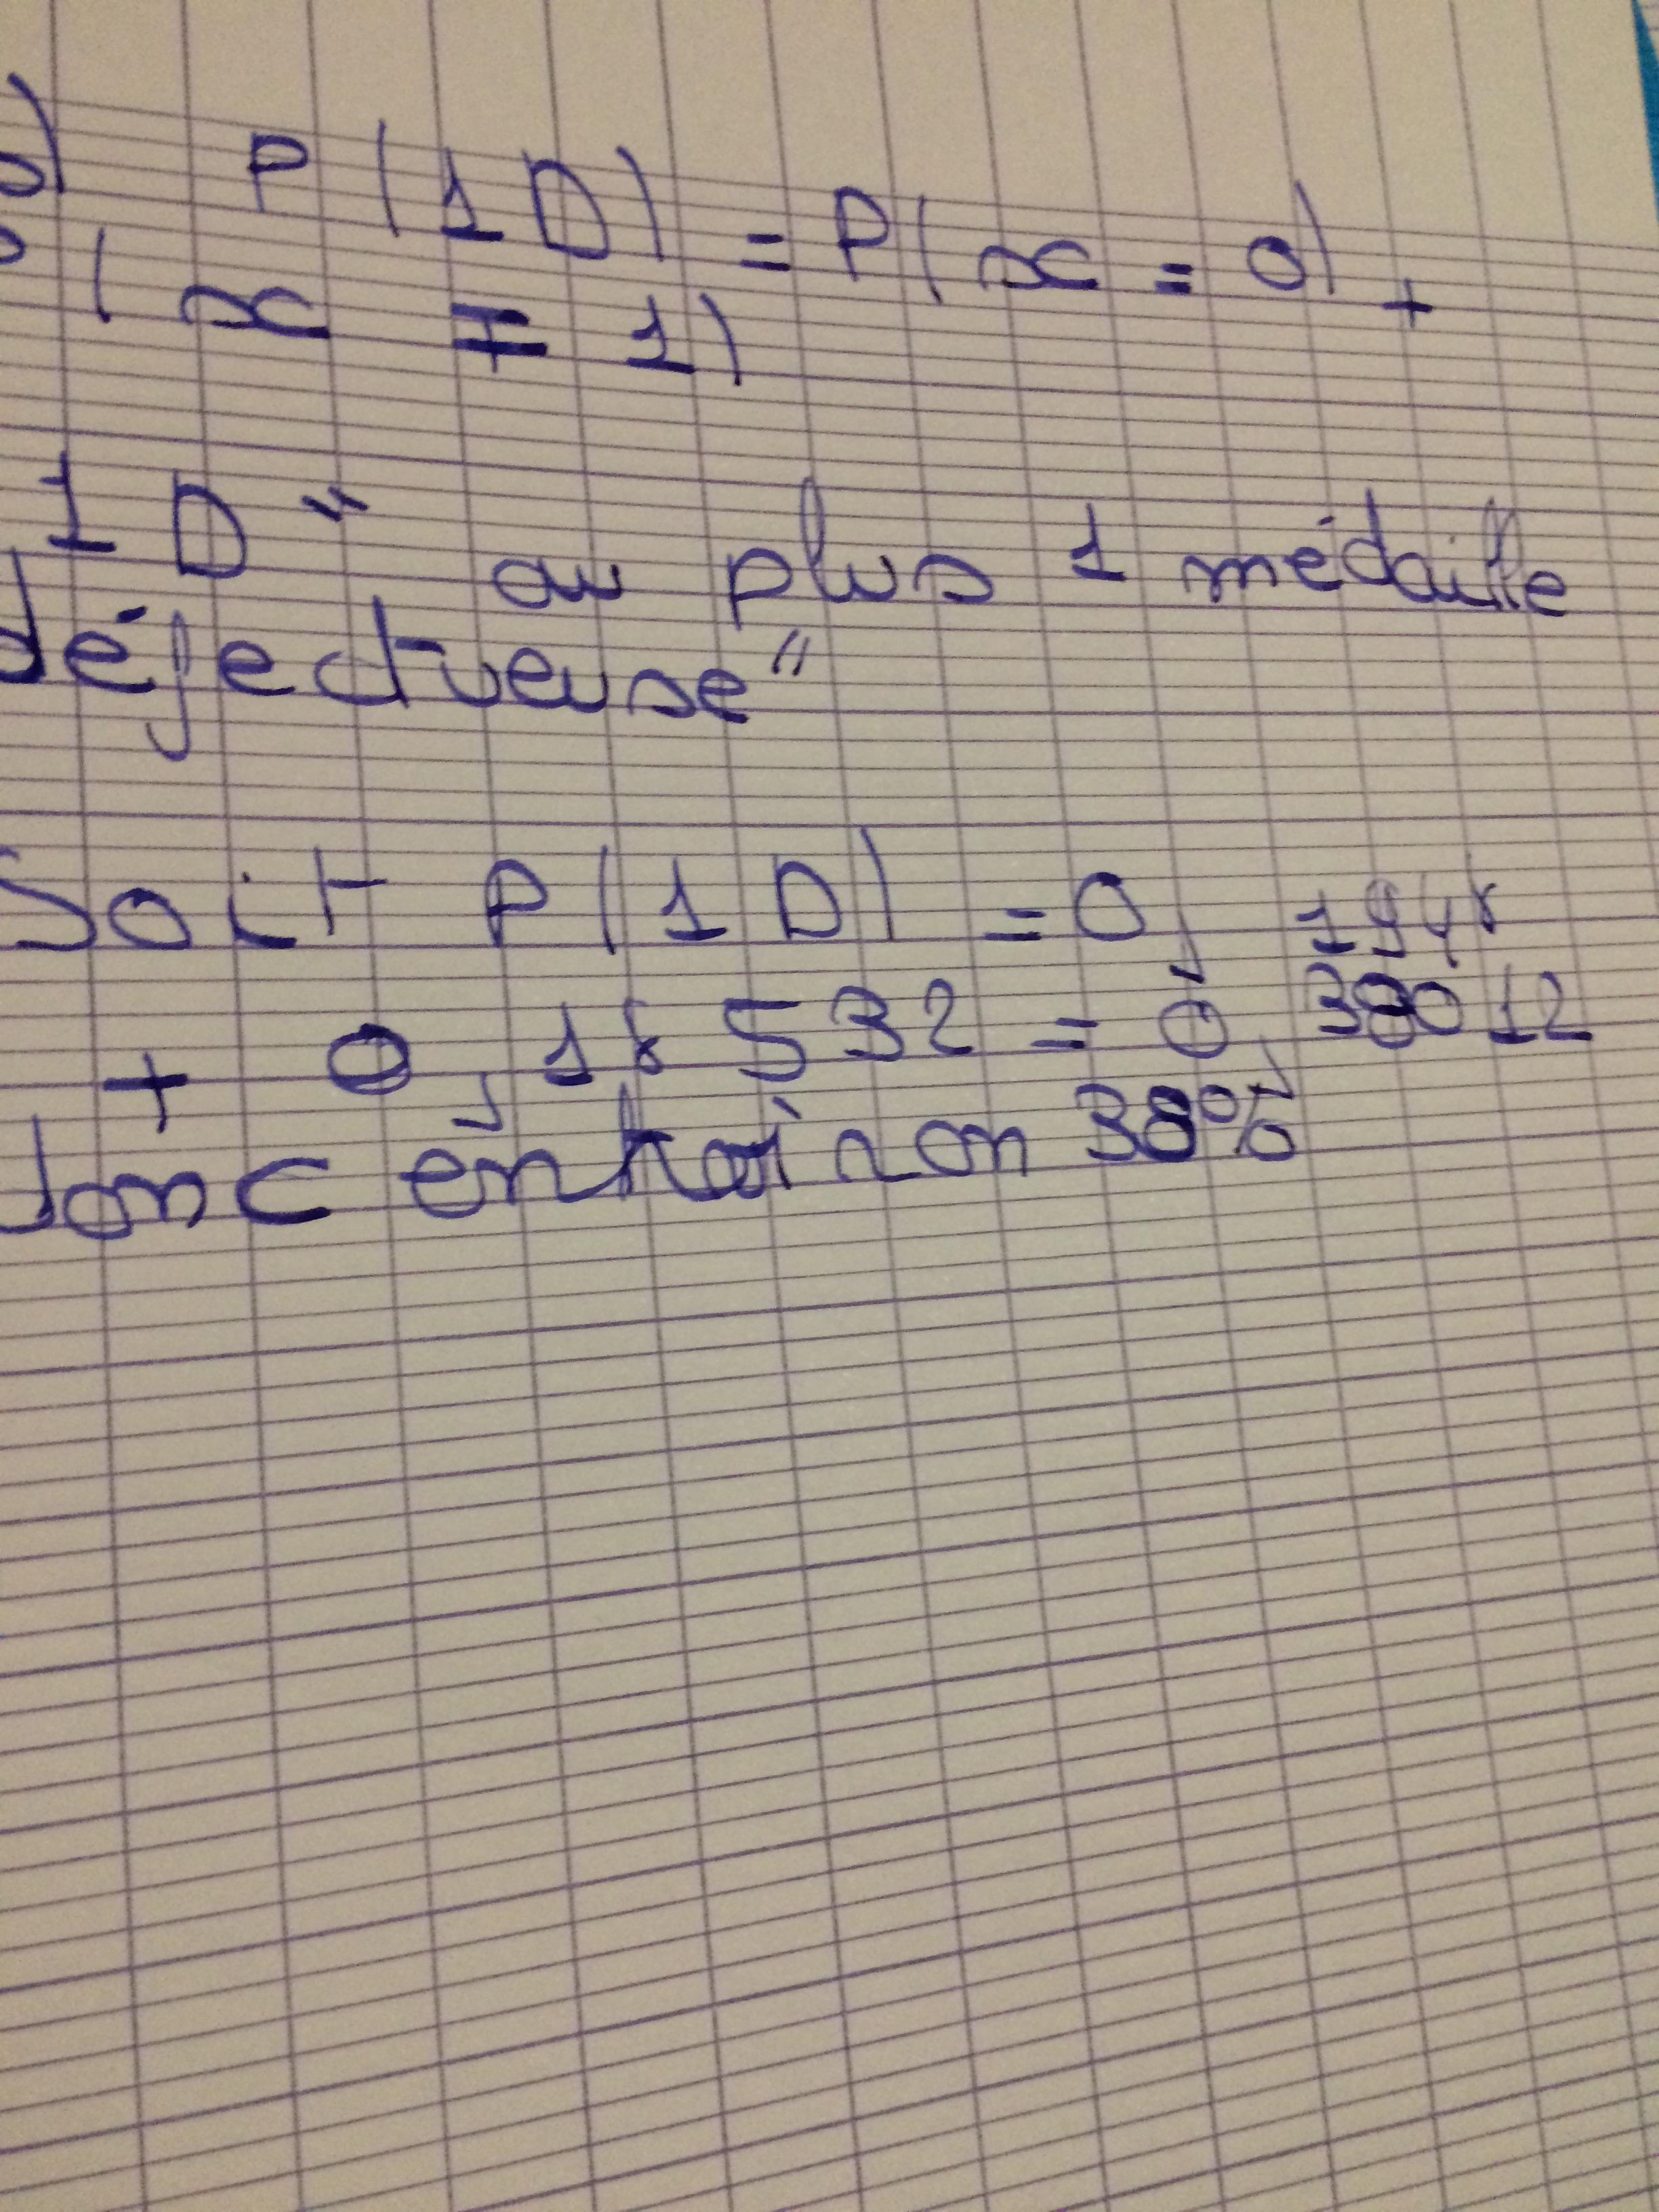 b) P(1D) = P(x = 0) +
P(x = 1)
1D " au plus 1 médaille
défectueuse"
Soit P(1D) = 0, 1948
+ 0, 18532 = 0, 38012
donc environ 38%